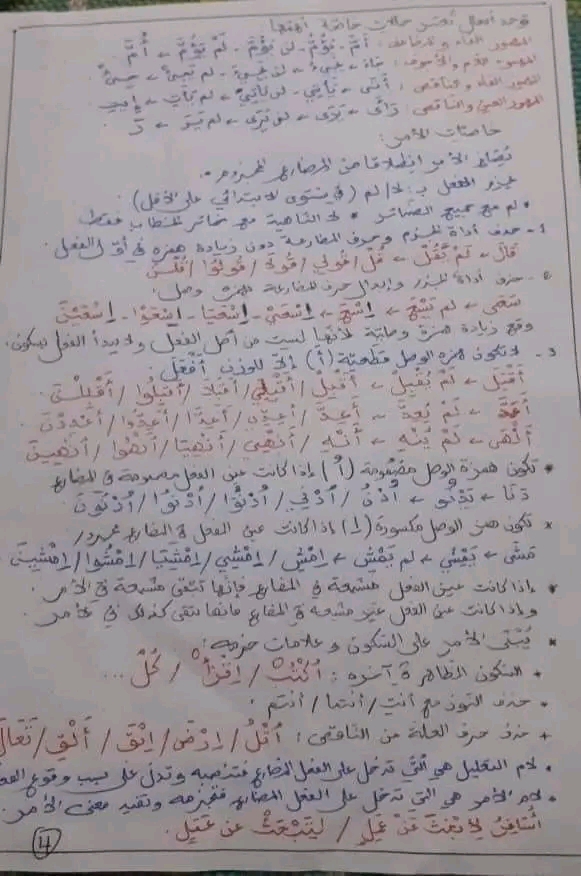 توجد أفعال تعتبر حالات خاصة أهمها
المهموز الفاء والمضاعف: أَمَّ - يَؤُمُّ - لن يَؤُمَّ - لَمْ يَؤُمَّ ← أُمَّ
المهموز اللام والأجوف: جاءَ ← يَجِيءُ ← لن يَجِيءَ - لم يَجِئْ ← جِئْ
المهموز الفاء والناقص: أَتَى ← يَأْتِي - لن يَأْتِيَ ← لم يَأْتِ ← إِيتِ
المهموز العين والناقص: رَأَى ← يَرَى ← لن يَرَى ← لم يَرَ ← رَ
خاصيات الأمر:
يُصَاغ الأمر انطلاقا من المضارع المجزوم.
يجزم الفعل بـ: لا / لم (في مستوى الابتدائي على الأقل)
• لم مع جميع الضمائر • لا الناهية مع ضمائر المخاطب فقط
1 - حذف أداة الجزم وحرف المضارعة دون زيادة همزة في أول الفعل
قالَ ← لَمْ يَقُلْ ← قُلْ / قُولِي / قُولَا / قُولُوا / قُلْنَ
2 - حذف أداة الجزم وإبدال حرف المضارعة همزة وصل:
سَعَى ← لم يَسْعَ ← اِسْعَ ← اِسْعَيْ - اِسْعَيَا - اِسْعَوْا - اِسْعَيْنَ
وقع زيادة همزة وصلية لأنها ليست من أصل الفعل ولا يبدأ الفعل بسكون.
3 - لا تكون همزة الوصل قطعية (أ) إلا للوزن أَفْعَلَ.
أَقْبَلَ ← لَمْ يُقْبِلْ ← أَقْبِلْ / أَقْبِلِي / أَقْبِلَا / أَقْبِلُوا / أَقْبِلْنَ
أَعَدَّ ← لَمْ يُعِدَّ ← أَعِدَّ / أَعِدِّي / أَعِدَّا / أَعِدُّوا / أَعْدِدْنَ
أَنْهَى ← لَمْ يُنْهِ ← أَنْهِ / أَنْهِي / أَنْهِيَا / أَنْهُوا / أَنْهِينَ
* تكون همزة الوصل مضمومة (أُ) إذا كانت عين الفعل مضمومة في المضارع
دَنَا ← يَدْنُو ← اُدْنُ / اُدْنِي / اُدْنُوَا / اُدْنُوا / اُدْنُونَ
* تكون همزة الوصل مكسورة (اِ) إذا كانت عين الفعل في المضارع
مَشَى ← يَمْشِي ← لم يَمْشِ ← اِمْشِ / اِمْشِي / اِمْشِيَا / اِمْشُوا / اِمْشِينَ
* إذا كانت عين الفعل مشبعة في المضارع فإنها تبقى مشبعة في الأمر.
وإذا كانت عين الفعل غير مشبعة في المضارع فإنها تبقى كذلك في الأمر.
* يُبْنَى الأمر على السكون وعلامات جزمه:
+ السكون الظاهرة في آخره: اُكْتُبْ / اِقْرَأْ / كُلْ ...
+ حذف النون مع أنتِ / أنتما / أنتم.
+ حذف حرف العلة من الناقص: اُتْلُ / اِرْضَ / اِبْقَ / أَلْقِ / تَعَالَ
• لام التعليل هي التي تدخل على الفعل المضارع فتنصبه وتدل على سبب وقوع
• لام الأمر هي التي تدخل على الفعل المضارع فتجزمه وتفيد معنى الأمر.
أُسَافِرُ لِأَبْحَثَ عَنْ عَمَلٍ / لِيَبْحَثْ عن عَمَلٍ.
4